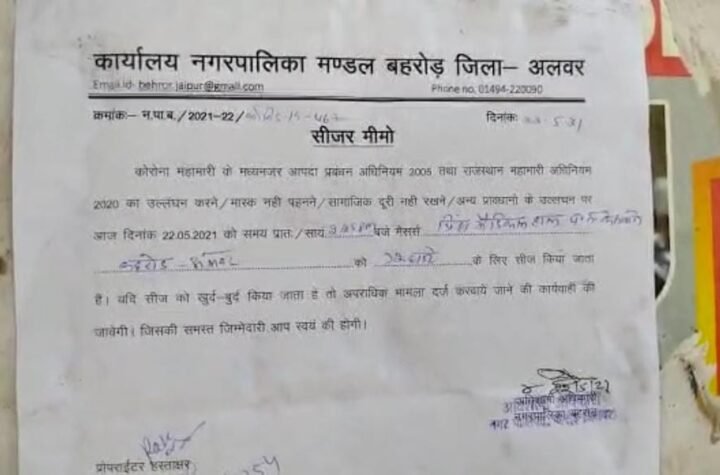 कार्यालय नगरपालिका मण्डल बहरोड़ जिला– अलवर
Email.id- behror.jaipur@gmail.com Phone no. 01494-220090
क्रमांकः– न.पा.ब./2021-22/ दिनांकः
सीजर मीमो
कोरोना महामारी के मध्यनजर आपदा प्रबंधन अधिनियम 2005 तथा राजस्थान महामारी अधिनियम
2020 का उल्लंघन करने/मास्क नही पहनने/सामाजिक दूरी नही रखने/अन्य प्रावधानो के उल्लघन पर
आज दिनांक 22.05.2021 को समय प्रातः/सायं बजे मैसर्स
को के लिए सीज किया जाता
है। यदि सीज को खुर्द-बुर्द किया जाता है तो अपराधिक मामला दर्ज करवाये जाने की कार्यवाही की
जावेगी। जिसकी समस्त जिम्मेदारी आप स्वयं की होगी।
अधिशाषी अधिकारी
नगरपालिका बहरोड़
प्रोपराईटर हस्ताक्षर